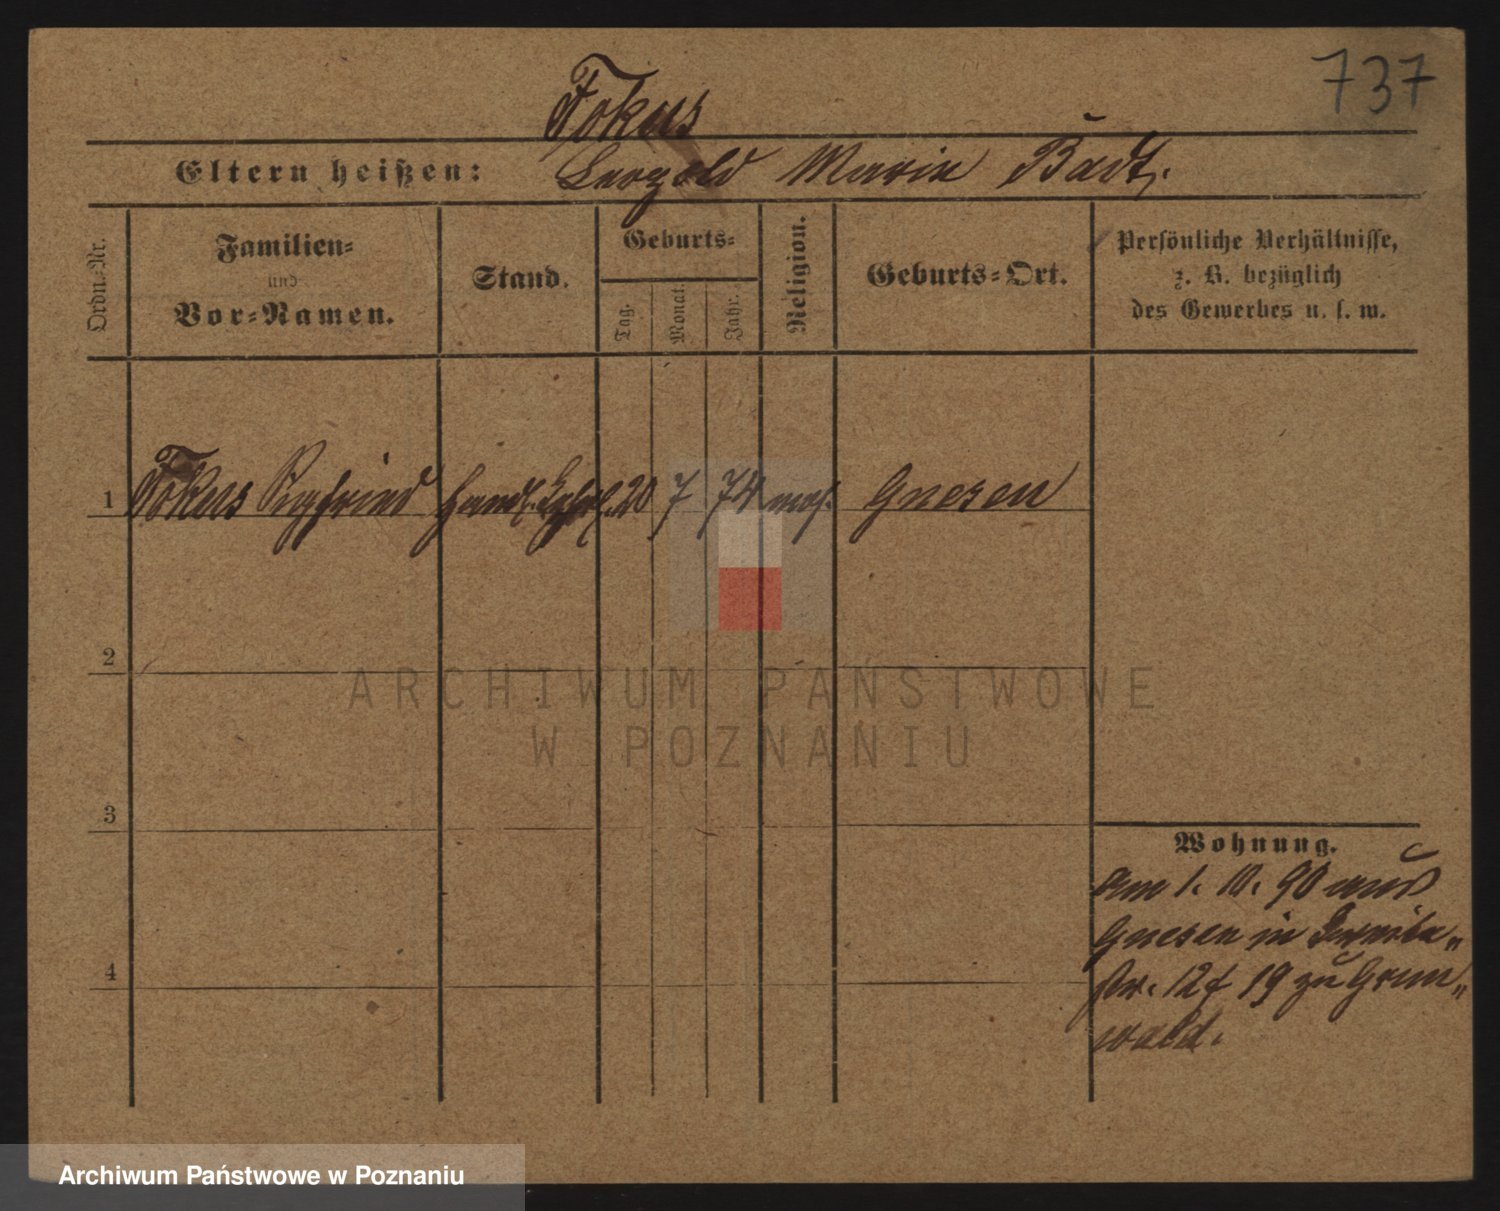 737
Fokus
Eltern heißen: Leopold Marie Badt.
Ordn.-Nr.
Familien-
und
Vor-Namen.
Stand.
Geburts-
Tag.
Monat.
Jahr.
Religion.
Geburts-Ort.
Persönliche Verhältnisse,
z. B. bezüglich
des Gewerbes u. s. w.
1 Fokus Sigfried Handl. Lehrl. 20 7 74 mos. Gnesen
2
ARCHIWUM PAŃSTWOWE
W POZNANIU
3
4
Wohnung.
Am 1. 10. 90 aus
Gnesen in
str. 12 f 19 zu Grun„
wald.
Archiwum Państwowe w Poznaniu